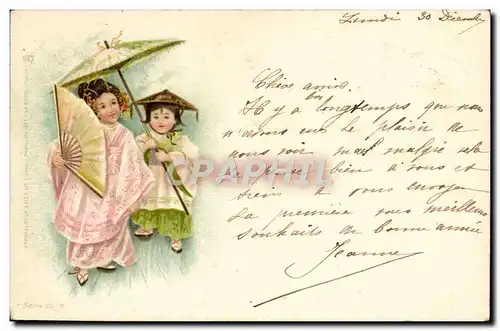 Lundi 30 Décembre
Chère amie,
Il y a bien longtemps que nous
n'avons eu le plaisir de
nous voir mais malgré cela
je pense bien à vous et
tiens à vous envoyer
la première mes meilleurs
souhaits de bonne année
Jeanne
CPARAMA